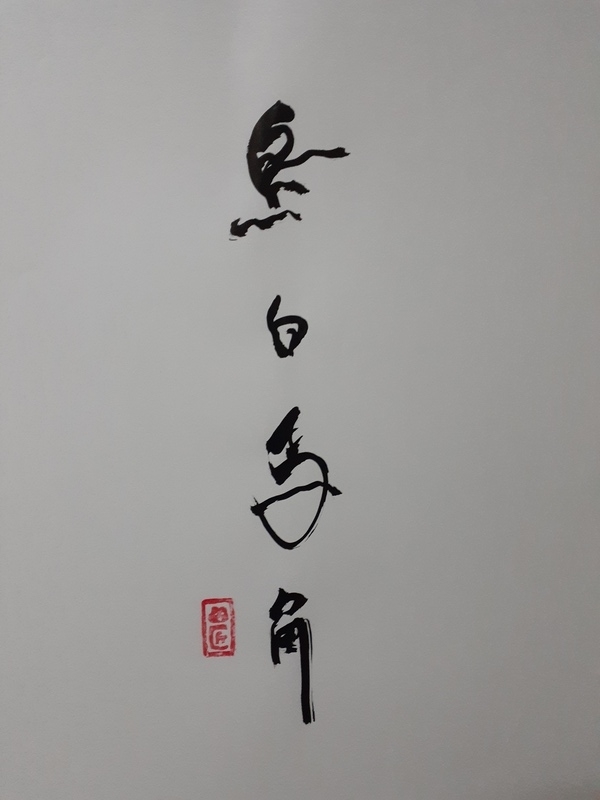 烏白馬角